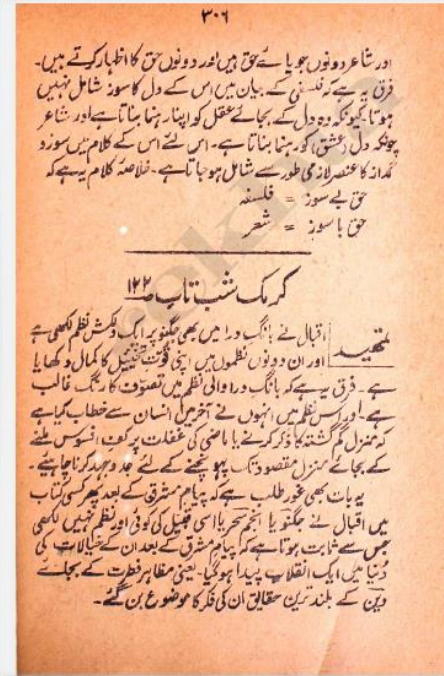 ۳۰۶
اور شاعر دونوں جویائے حق ہیں اور دونوں حق کا اظہار کرتے ہیں۔
فرق یہ ہے کہ فلسفی کے بیان میں اس کے دل کا سوز شامل نہیں
ہوتا۔ کیونکہ وہ دل کے بجائے عقل کو اپنا رہنما بناتا ہے اور شاعر
چونکہ دل (عشق) کو رہنما بناتا ہے۔ اس لئے اس کے کلام میں سوز و
گداز کا عنصر لازمی طور سے شامل ہو جاتا ہے۔ خلاصہ کلام یہ ہے کہ
حق بے سوز = فلسفہ
حق با سوز = شعر
کرمک شب تاب ص۱۲۲
تمہید اقبال نے بانگ درا میں بھی جگنو پر ایک دلکش نظم لکھی ہے
اور ان دونوں نظموں میں اپنی قوت تخیل کا کمال دکھایا
ہے۔ فرق یہ ہے کہ بانگ درا والی نظم میں تصوف کا رنگ غالب
ہے۔ اور اس نظم میں انہوں نے آخر میں انسان سے خطاب کیا ہے
کہ منزل گم گشتہ کا ذکر کرنے یا ماضی کی غفلت پر کف افسوس ملنے
کے بجائے منزل مقصود تک پہونچنے کے لئے جد و جہد کرنا چاہیے۔
یہ بات بھی غور طلب ہے کہ پیام مشرق کے بعد پھر کسی کتاب
میں اقبال نے جگنو یا انجم سحر یا اسی قبیل کی کوئی اور نظم نہیں لکھی
جس سے ثابت ہوتا ہے کہ پیام مشرق کے بعد ان کے خیالات کی
دُنیا میں ایک انقلاب پیدا ہو گیا۔ یعنی مظاہر فطرت کے بجائے
دین کے بلند ترین حقایق ان کی فکر کا موضوع بن گئے۔